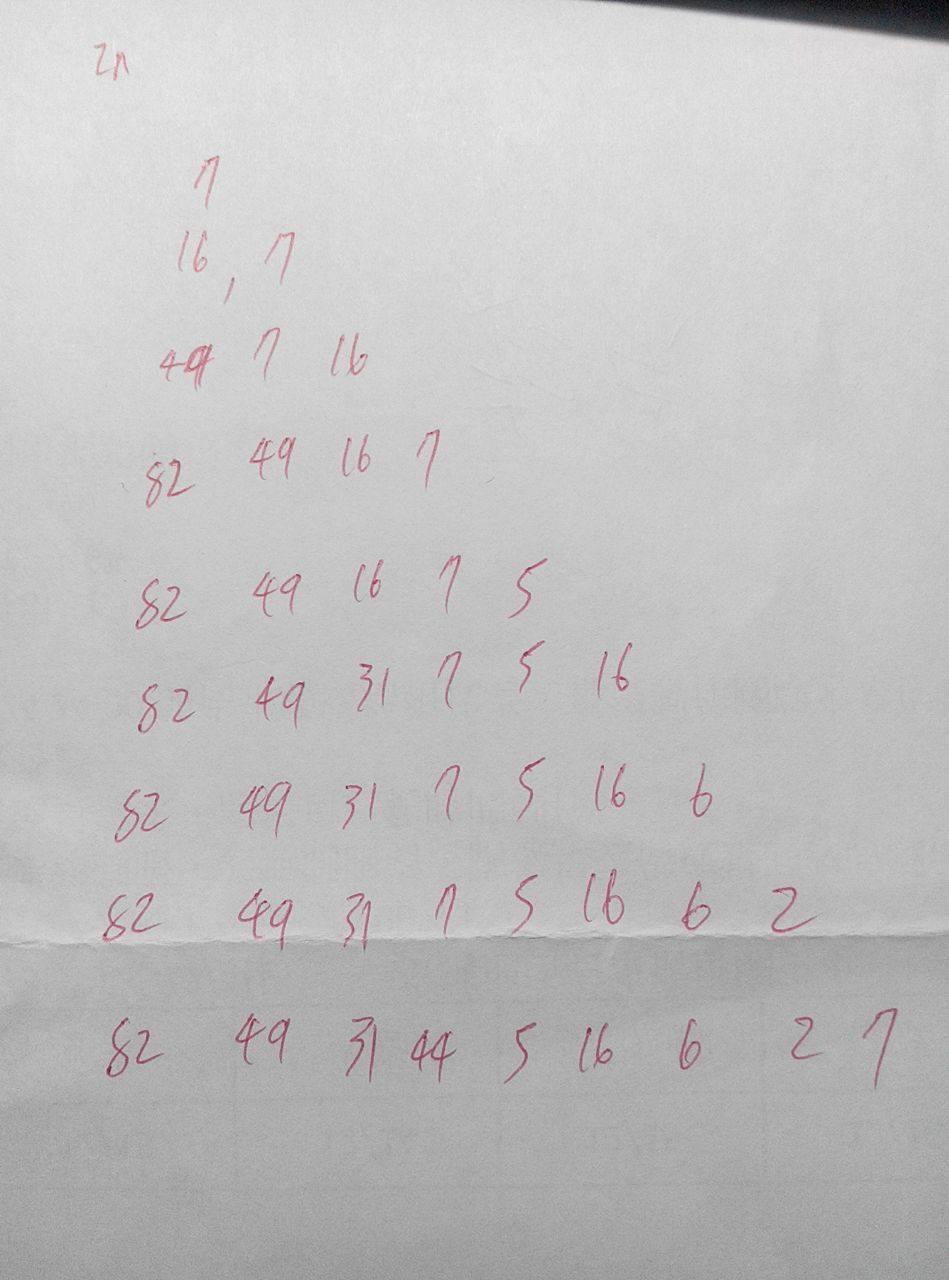 2n
7
16, 7
49 7 16
82 49 16 7
82 49 16 7 5
82 49 31 7 5 16
82 49 31 7 5 16 6
82 49 31 7 5 16 6 2
82 49 31 44 5 16 6 2 7